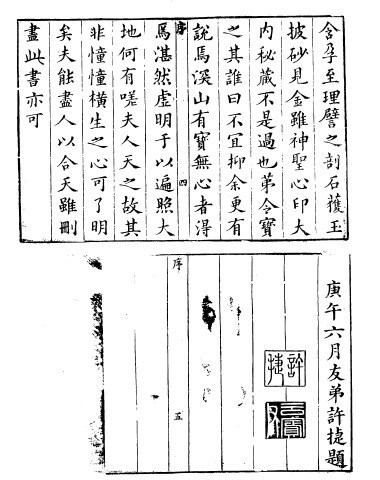 含孕至理譬之剖石獲玉
披砂見金雖神聖心印大
內秘藏不是過也第令寶
之其誰曰不宜抑余更有
說焉深山有寶無心者得
序 四
焉湛然虛明于以遍照大
地何有嗟夫人天之故其
非憧憧橫生之心可了明
矣夫能盡人以合天雖刪
盡此書亦可
庚午六月友弟許捷題
許捷
序 五